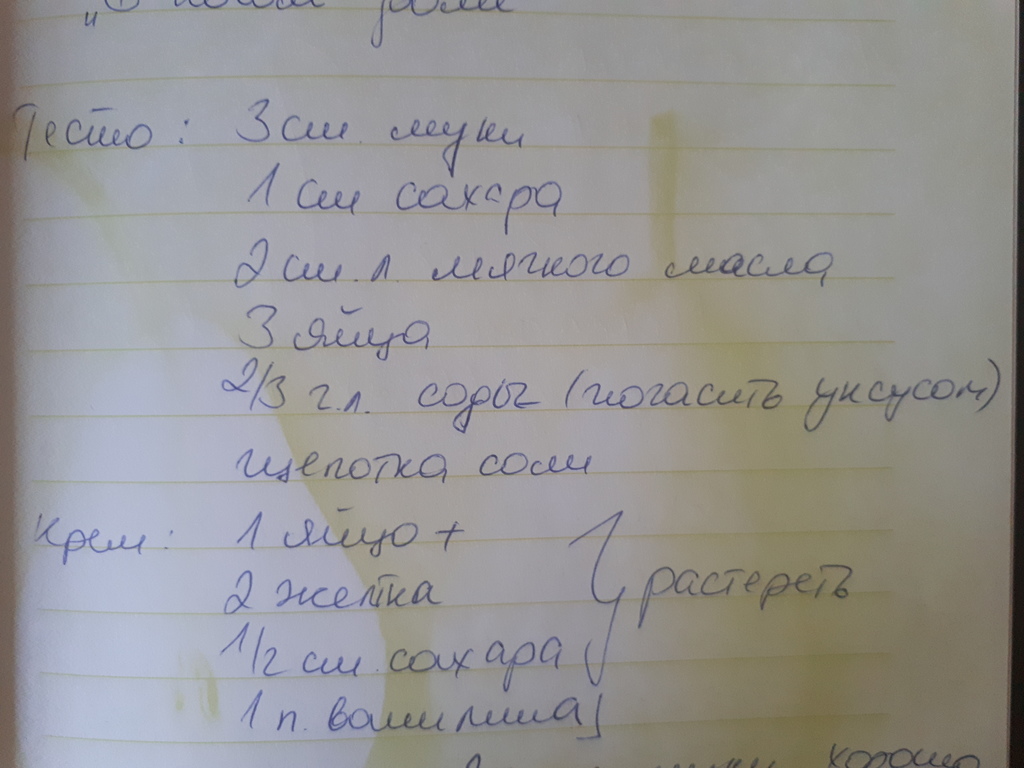 Тесто: 3 ст. муки
1 ст сахара
2 ст. л. мягкого масла
3 яйца
2/3 г.л. соды (погасить уксусом)
щепотка соли
Крем: 1 яйцо +
2 желтка
1/2 ст. сахара
1 п. ванилина
растереть
хорошо